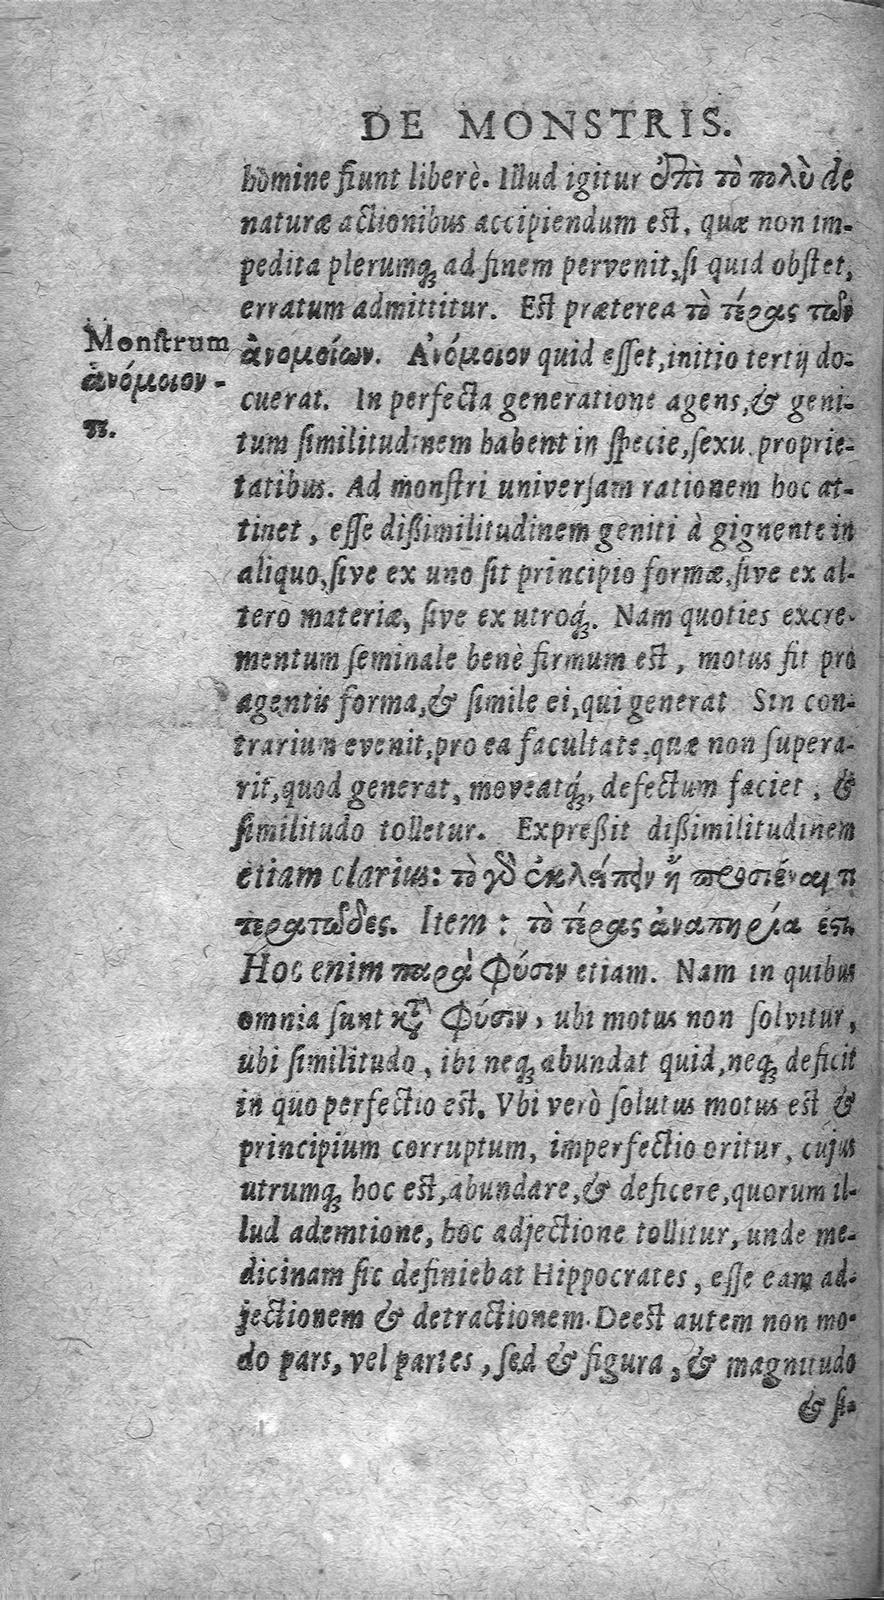 DE MONSTRIS.
homine fiunt liberè. Illud igitur ἐπὶ τὸ πολὺ de
naturæ actionibus accipiendum est, quæ non im-
pedita plerumq; ad finem pervenit, si quid obstet,
erratum admittitur. Est præterea τὸ τέρας τῶν
Monstrum
ἀνόμοιον-
τι.
ἀνομοίων. Ἀνόμοιον quid esset, initio tertij do-
cuerat. In perfecta generatione agens, & geni-
tum similitudinem habent in specie, sexu, proprie-
tatibus. Ad monstri universam rationem hoc at-
tinet, esse dißimilitudinem geniti à gignente in
aliquo, sive ex uno sit principio formæ, sive ex al-
tero materiæ, sive ex utroq;. Nam quoties excre-
mentum seminale benè firmum est, motus fit pro
agentis forma, & simile ei, qui generat Sin con-
trarium evenit, pro ea facultate, quæ non supera-
rit, quod generat, moveatq;, defectum faciet, &
similitudo tolletur. Expreßit dißimilitudinem
etiam clarius: τὸ γὸ ἐκλείπειν ἢ προσιέναι τι
τερατῶδες. Item: τὸ τέρας ἀναπηρία ἐστι.
Hoc enim παρὰ φύσιν etiam. Nam in quibus
omnia sunt κỳ φύσιν, ubi motus non solvitur,
ubi similitudo, ibi neq; abundat quid, neq; deficit
in quo perfectio est. Vbi verò solutus motus est &
principium corruptum, imperfectio oritur, cujus
utrumq; hoc est, abundare, & deficere, quorum il-
lud ademtione, hoc adjectione tollitur, unde me-
dicinam sic definiebat Hippocrates, esse eam ad-
jectionem & detractionem. Deest autem non mo-
do pars, vel partes, sed & figura, & magnitudo
& si-